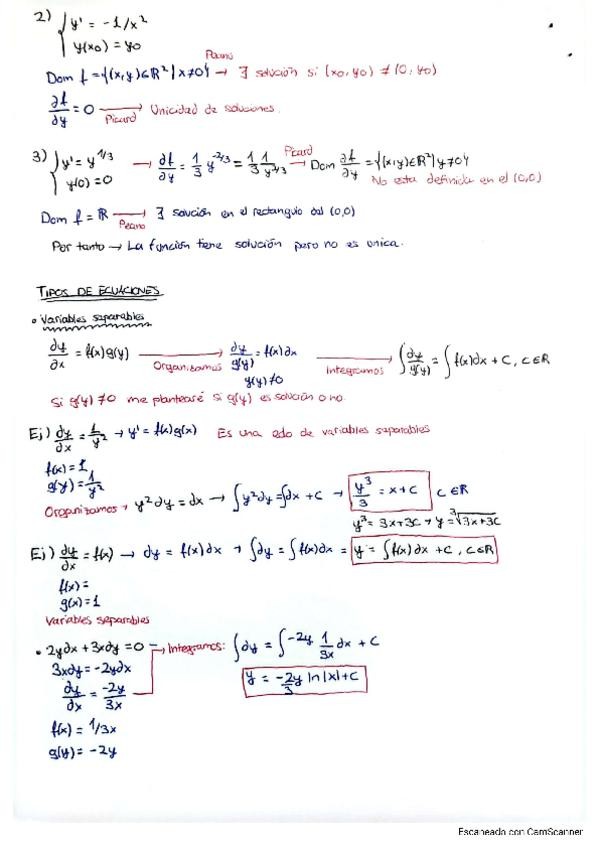 2) { y' = -1/x²
y(x₀) = y₀
Peano
Dom f = {(x,y)∈ℝ² | x≠0} → ∃ solución si (x₀,y₀) ≠ (0,y₀)
∂f/∂y = 0 → Picard Unicidad de soluciones.
3) { y' = y^1/3 → ∂f/∂y = 1/3 y^-2/3 = 1/3 1/y^2/3 → Picard Dom ∂f/∂y = {(x,y)∈ℝ² | y≠0}
y(0) = 0 No esta definida en el (0,0)
Dom f = ℝ → Peano ∃ solución en el rectangulo del (0,0)
Por tanto → La función tiene solución pero no es unica.
TIPOS DE ECUACIONES
• Variables separables
∂y/∂x = f(x)g(y) → Organizamos ∂y/g(y) = f(x)∂x → Integramos ∫∂y/g(y) = ∫f(x)dx + C, C∈ℝ
g(y)≠0
Si g(y)≠0 me plantearé si g(y) es solución o no.
Ej) ∂y/∂x = 1/y² → y' = f(x)g(x) Es una edo de variables separables
f(x) = 1
g(y) = 1/y²
Organizamos → y²dy = dx → ∫y²∂y = ∫dx + C → y³/3 = x + C C∈ℝ
y³ = 3x + 3C → y = ³√3x+3C
Ej) ∂y/∂x = f(x) → dy = f(x)dx → ∫dy = ∫f(x)dx = y = ∫f(x)dx + C, C∈ℝ
f(x) =
g(x) = 1
Variables separables
• 2ydx + 3xdy = 0 Integramos: ∫dy = ∫-2y 1/3x dx + C
3xdy = -2ydx
∂y/∂x = -2y/3x
y = -2y/3 ln|x| + C
f(x) = 1/3x
g(y) = -2y
Escaneado con CamScanner